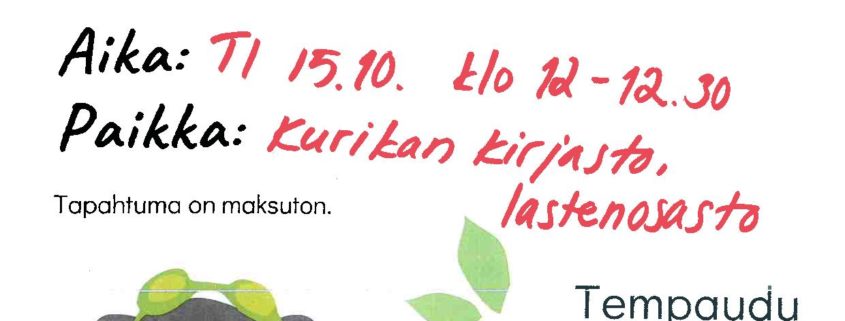 Aika: TI 15.10. klo 12-12.30
Paikka: Kurikan kirjasto,
lastenosasto
Tapahtuma on maksuton.
Tempaudu